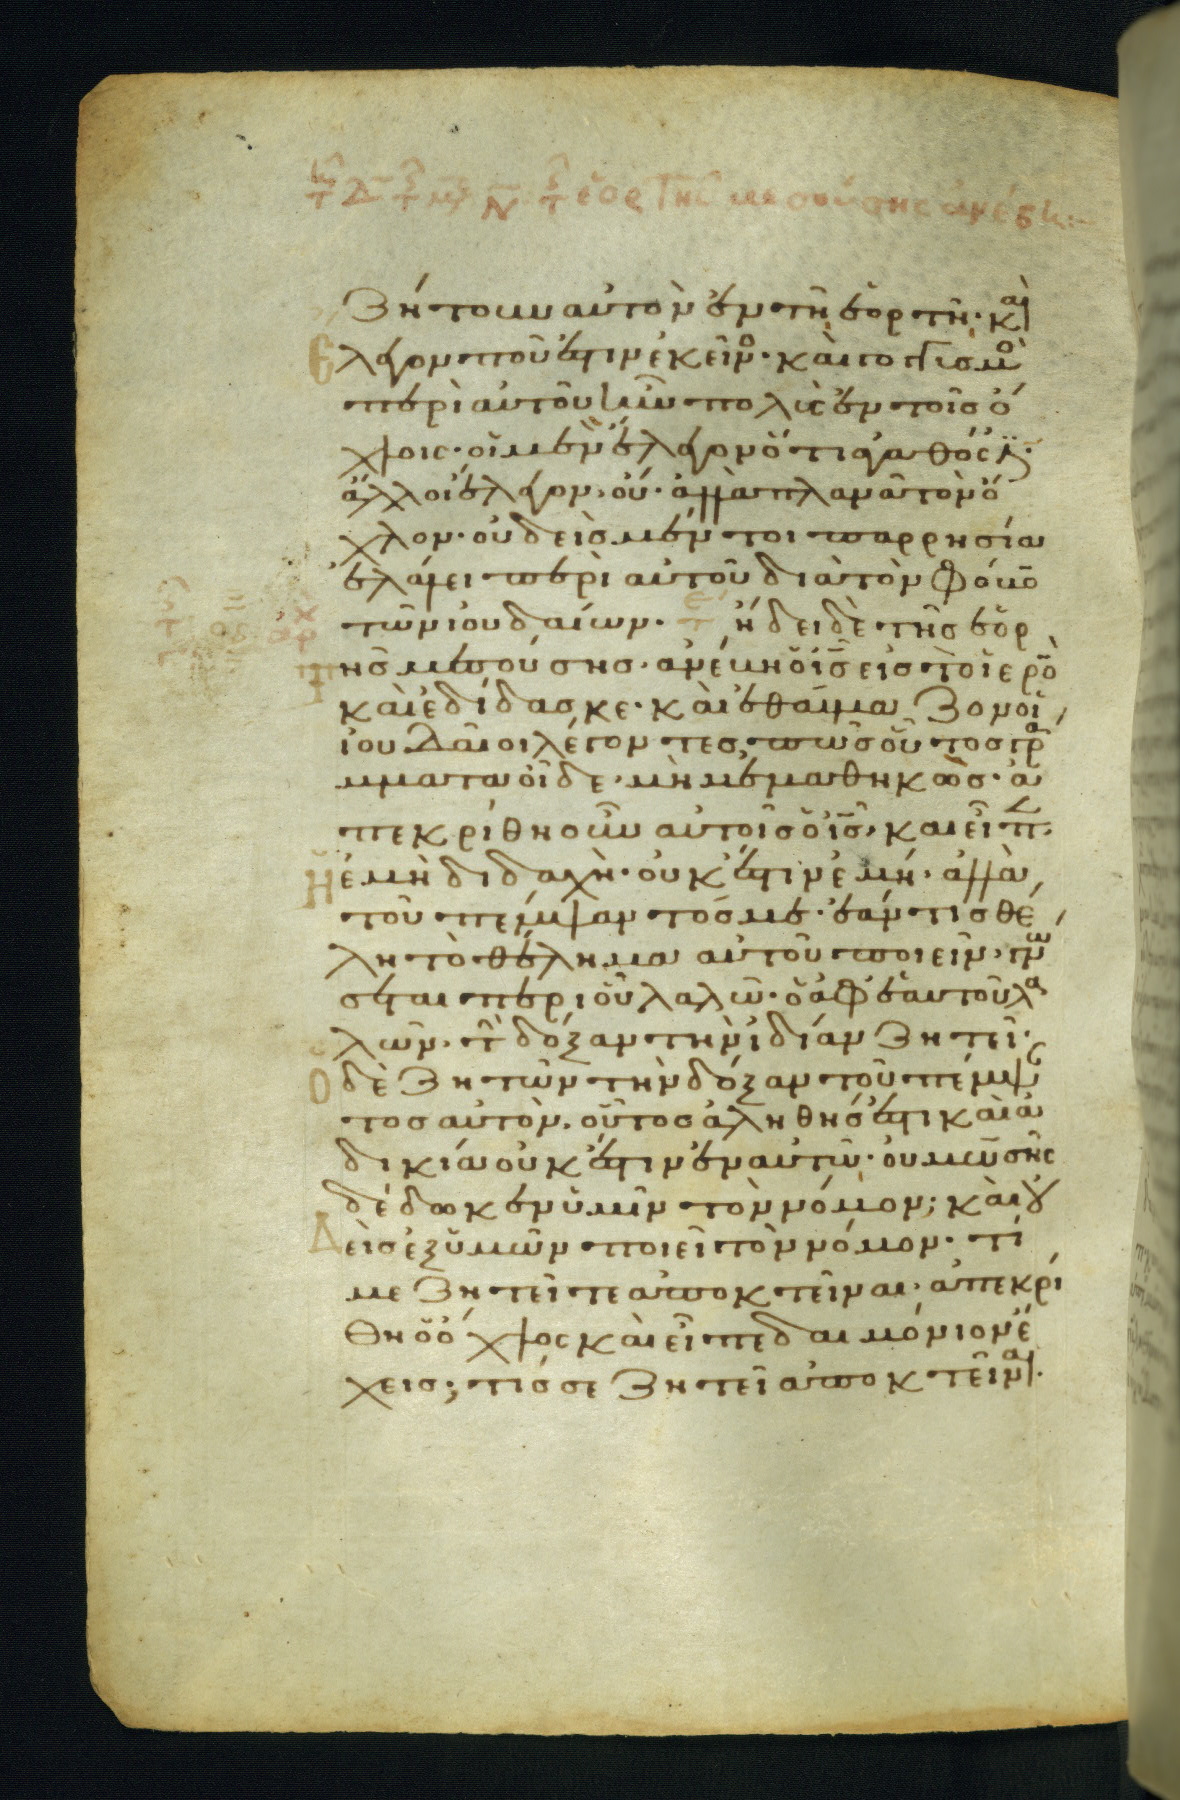 τῆς ἑορτῆς μεσούσης ἀνέβη:
ζήτουν αὐτὸν ἐν τῆ ἑορτῆ· καὶ
ἔλεγον ποῦ ἐστιν ἐκεῖνο· καὶ γογγισμὸ
περὶ αὐτοῦ ἦν πολὺς ἐν τοῖς ὄ
χλοις· οἱ μὲν ἔλεγον ὅτι ἀγαθός ἐστι·
ἄλλοι ἔλεγον, οὔ· ἀλλὰ πλανᾶ τὸν ὄ
χλον· οὐδεὶς μέντοι παρρησία
ἐλάλει περὶ αὐτοῦ διὰ τὸν φόβο
τῶν ἰουδαίων· ἤδει δὲ τῆς ἑορ
τῆς μεσούσης· ἀνέβη ὁ ις εἰς τὸ ἱερὸ
καὶ ἐδίδασκε· καὶ ἐθαύμαζον οἱ
ἰουδαῖοι λέγοντες, πῶς οὗτος γρα
μματα οἶδε· μὴ μεμαθηκώς· ἀ
πεκρίθη οὖν αὐτοῖς ὁ ις, καὶ εἶπ
ἡ ἐμὴ διδαχὴ· οὐκ ἔστιν ἐμή· ἀλλὰ
τοῦ πέμψαντός με· ἐάν τις θέ
λη τὸ θέλημα αὐτοῦ ποιεῖν, γνώ
σεται περὶ οὗ λαλῶ· ὁ ἀφ ἑαυτοῦ λα
λῶν, τὴ δόξαν τὴν ἰδίαν ζητεῖ·
ὁ δὲ ζητῶν τὴν δόξαν τοῦ πέμψαν
τος αὐτὸν, οὗτος ἀληθής ἐστι καὶ ἀ
δικία οὐκ ἔστιν ἐν αὐτῶ· οὐ μωϋσῆς
δέδωκεν ὑμῖν τὸν νόμον; καὶ οὐ
δεὶς ἐξ ὑμῶν ποιεῖ τὸν νόμον· τί
με ζητεῖτε ἀποκτεῖναι· ἀπεκρί
θη ὁ ὄχλος καὶ εἶπε δαιμόνιον ἔ
χεις; τίς σε ζητεῖ ἀποκτεῖναι·